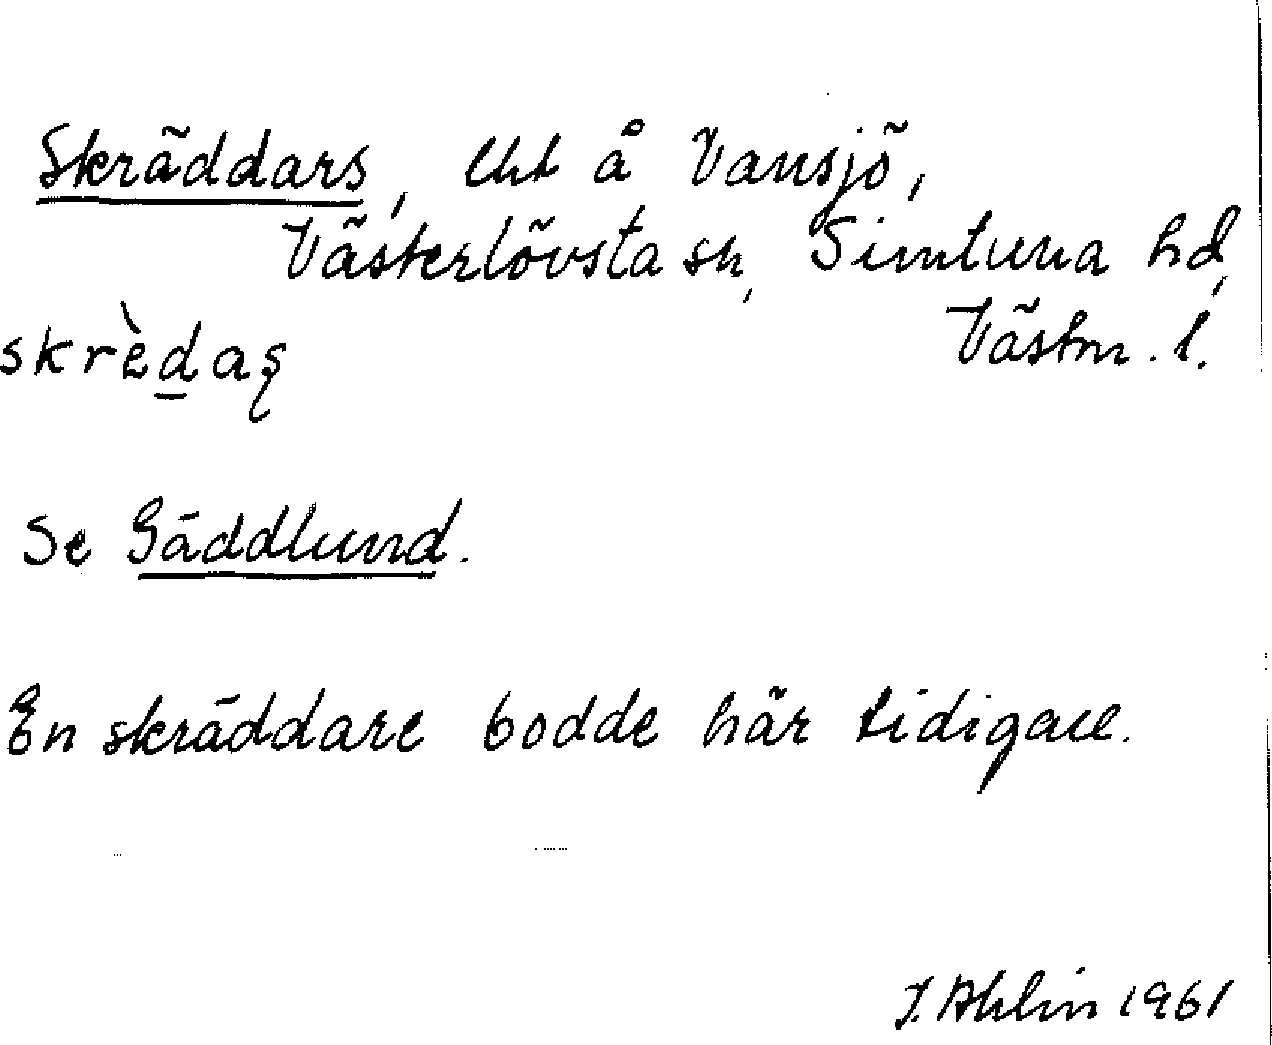 Skräddars, lht å Vansjö,
Västerlövsta sn, Simtuna hd,
Västm. l.
skrèdas̨
Se Gäddlund.
En skräddare bodde här tidigare.
J. Ahlin 1961